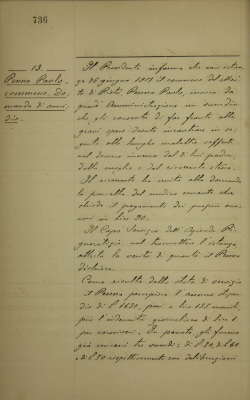 736
13.
Penna Paolo,
commesso. Do
manda di sussi
dio.
Il Presidente informa che con istan
za 26 giugno 1919 il commesso del Mon
te di Pietà, Penna Paolo, invoca da
quest'Amministrazione un sussidio
che gli consenta di far fronte alle
gravi spese dovute incontrare in se
guito alle lunghe malattie sofferte
nel decorso inverno dal di lui padre,
della moglie e del ricorrente stesso.
Il ricorrente ha unito alla domanda
la parcella del medico curante che
chiede il pagamento dei propri onor
ari in lire 20.
Il Capo Servizio dell'Azienda Pi
gnoratizia, nel trasmettere l'istanza,
attesta la verità di quanto il Penna
dichiara.
Come risulta dallo stato di servizio
il Penna percepisce l'annuo stipen
dio di L. 1620, pari a lire 135 mensili
più l'indennità giornaliera di lire 1
per caroviveri. In passato gli furono
già concessi tre sussidi: di L. 30, di L. 40
e di L. 50 rispettivamente con deliberazioni